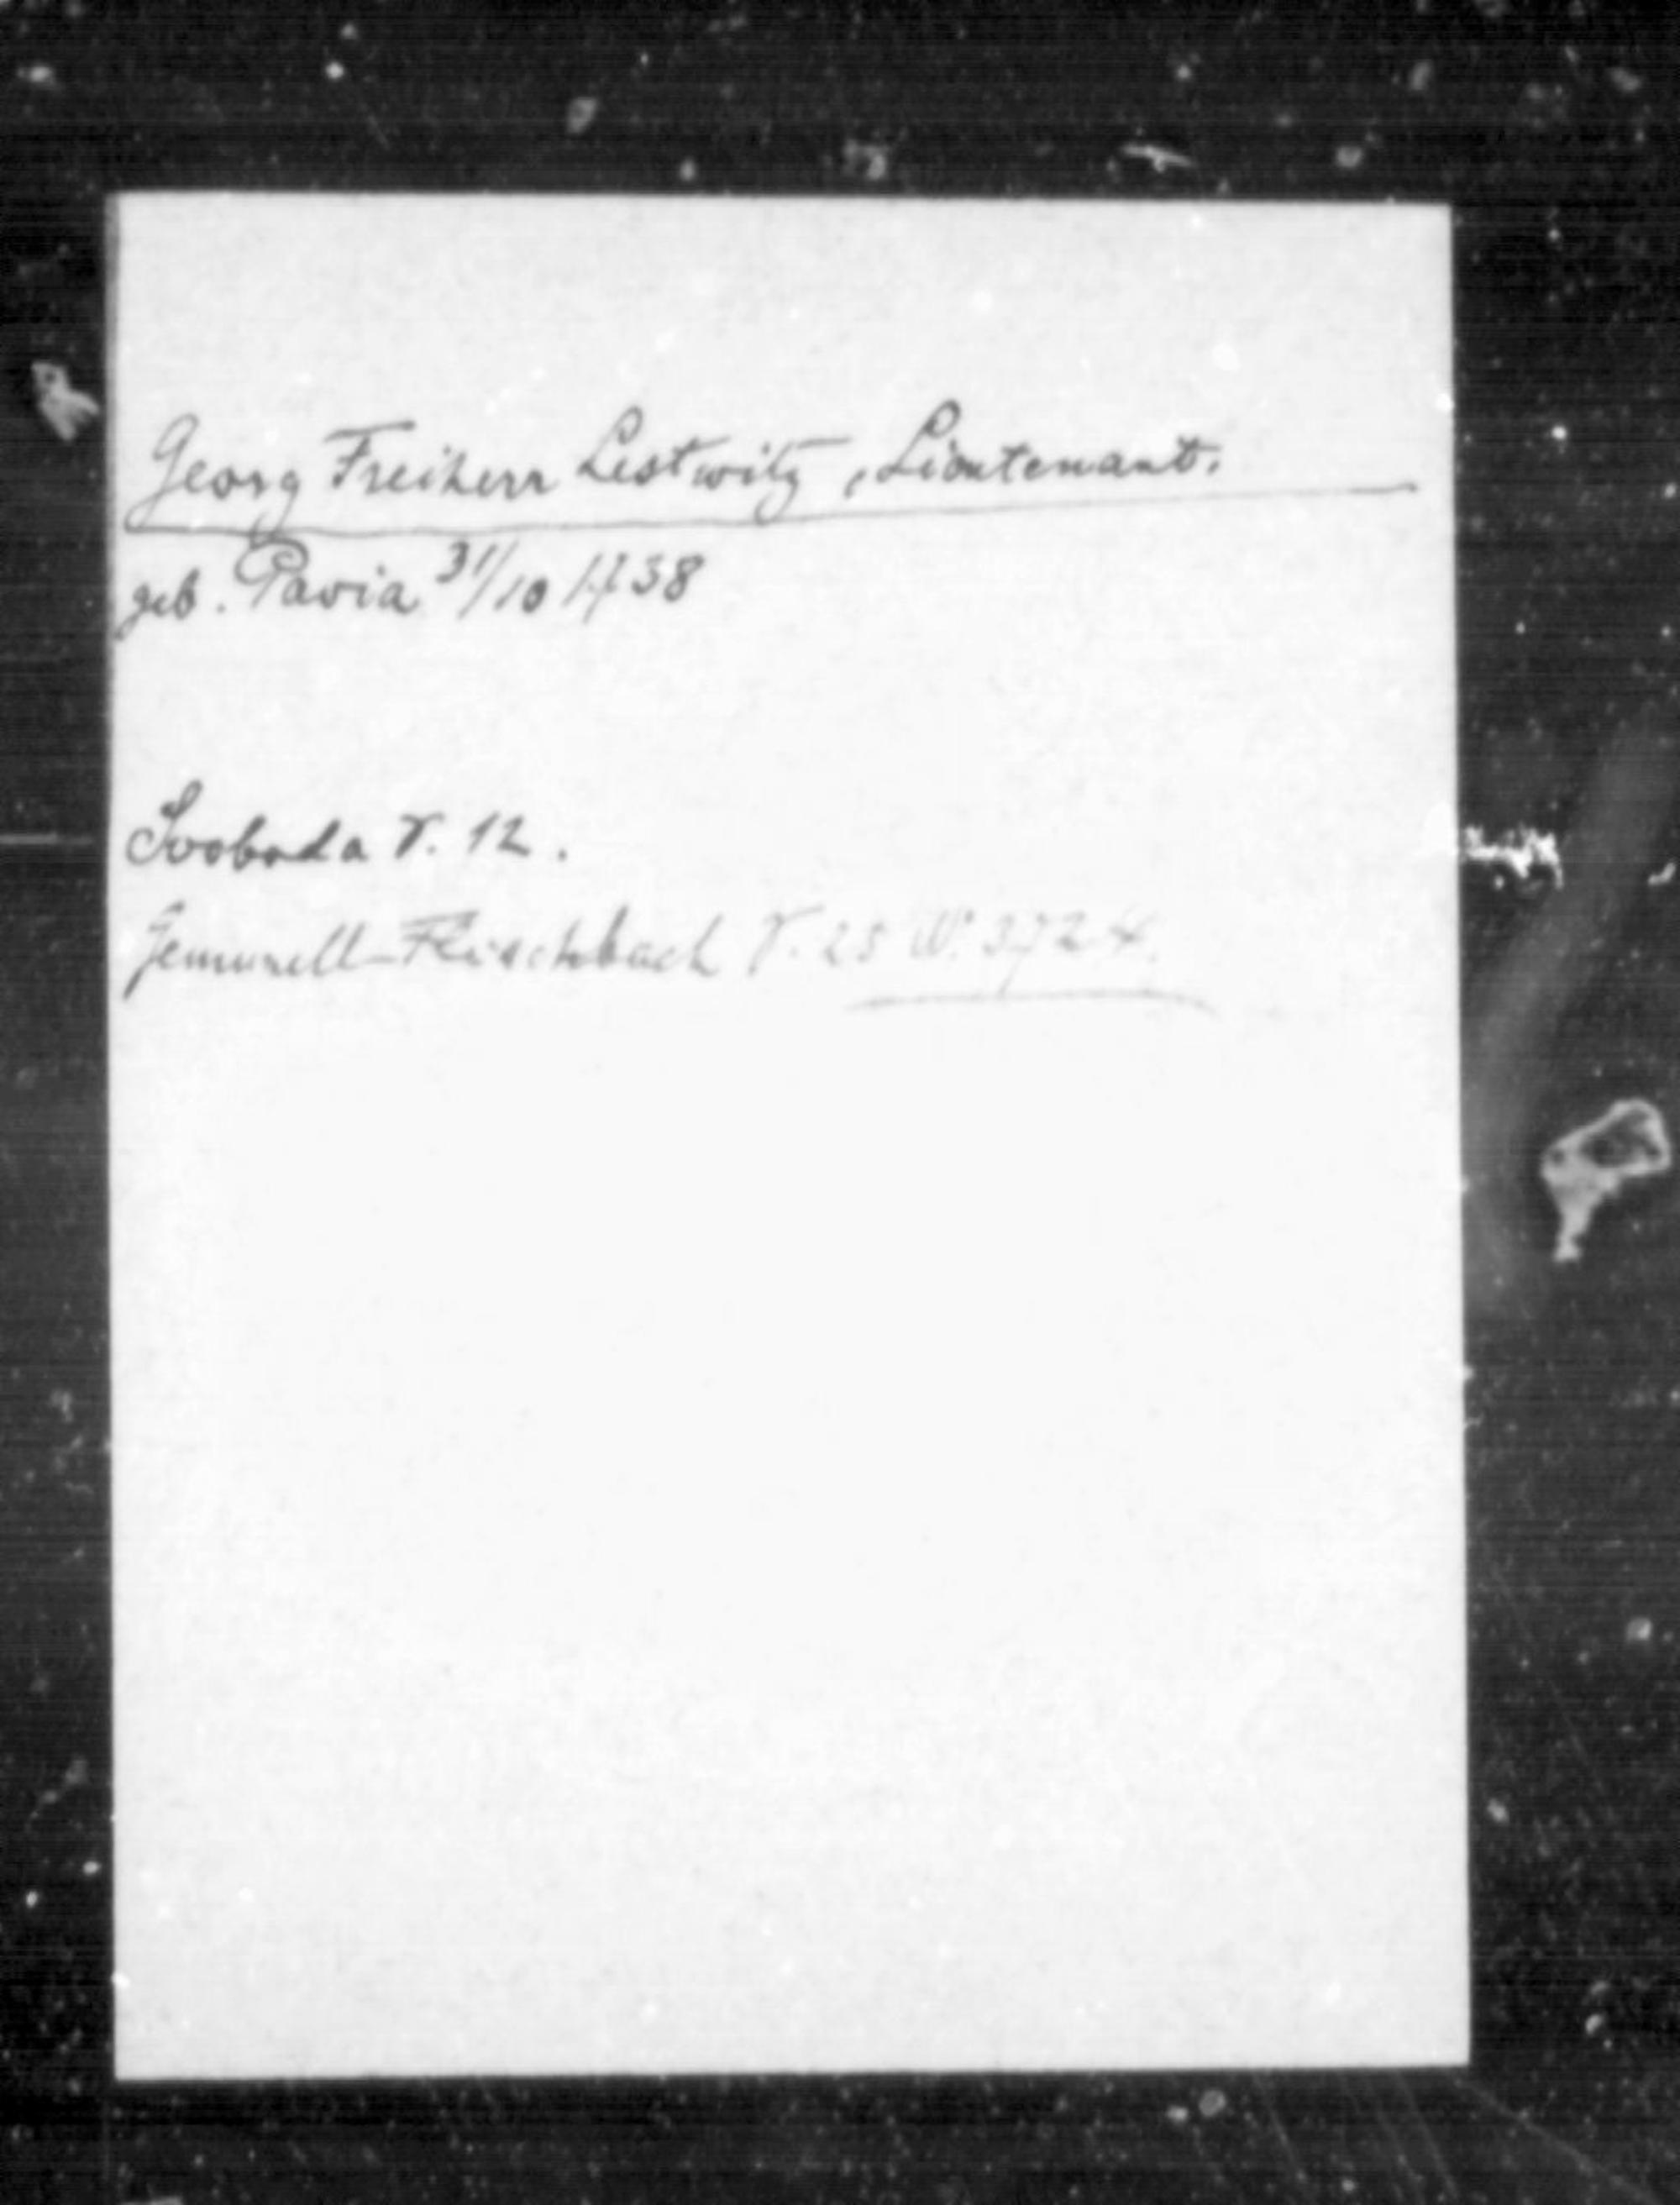 Georg Freiherr Lestwitz, Lieutenant.
geb. Pavia 31/10 1738
Svoboda V. 12.
Gemmell-Flischbach V. 25 W. 3724.